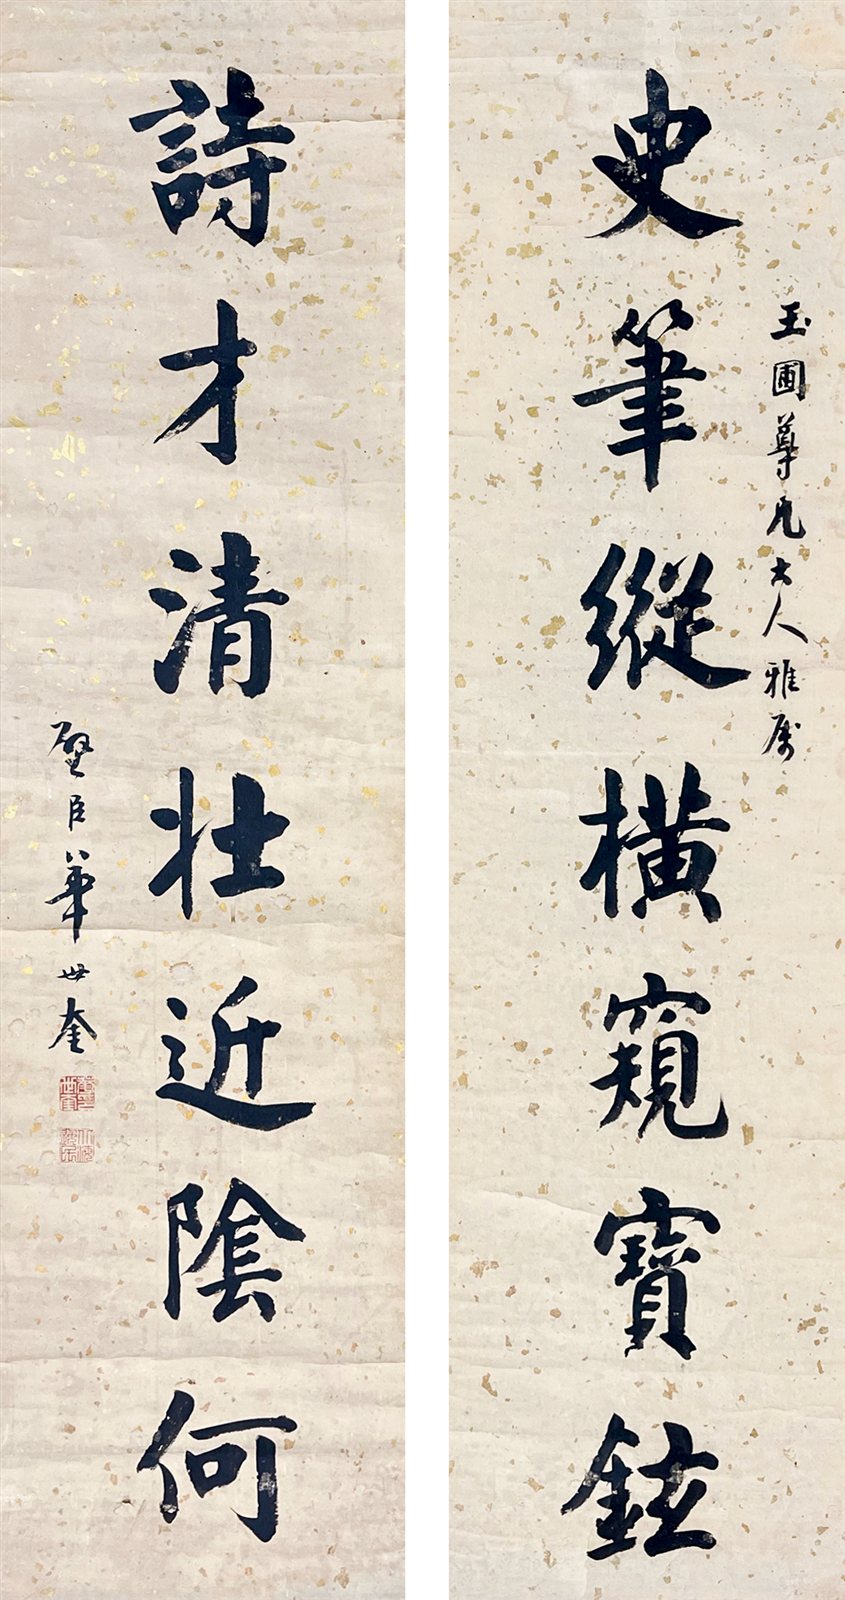 玉圃尊兄大人雅属
史筆縱橫窺寶鉉
詩才清壯近陰何
壁臣華世奎